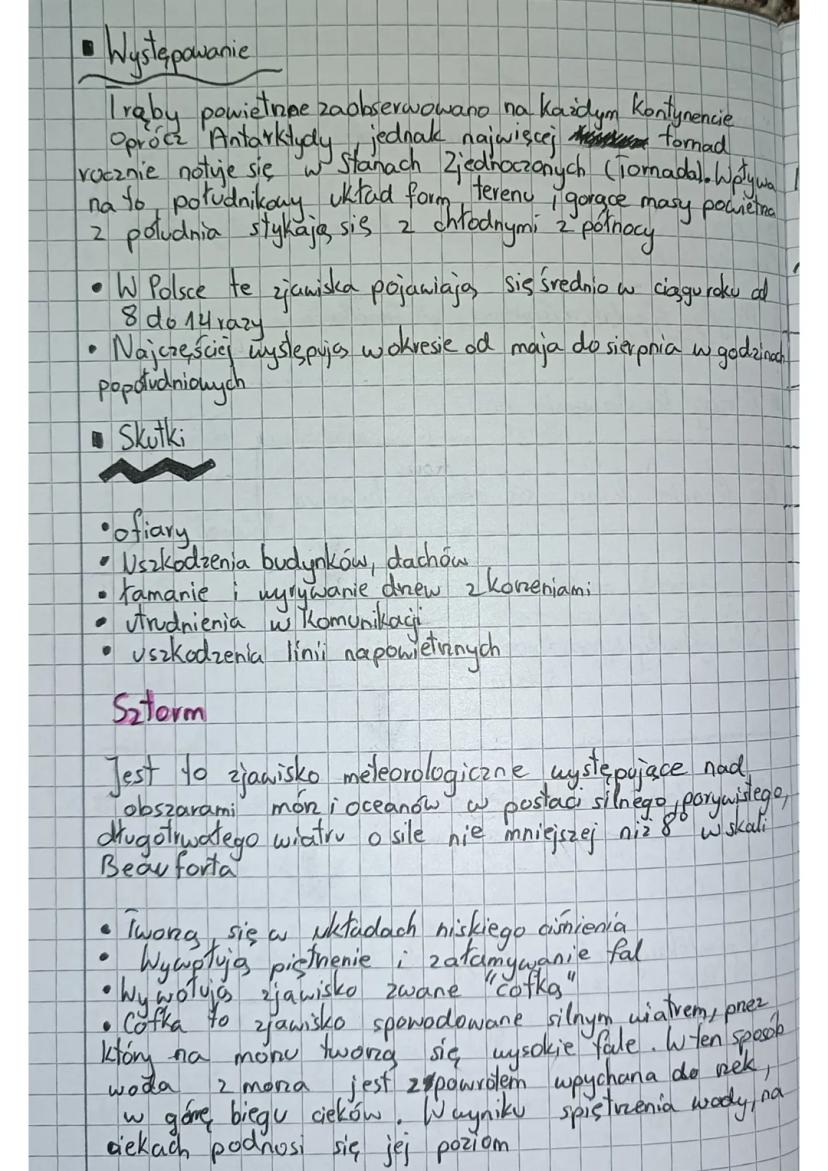 ▪ Występowanie
Trąby powietrzne zaobserwowano na każdym kontynencie
oprócz Antarktydy jednak najwięcej tornad
rocznie notuje się w Stanach Zjednoczonych (Tornada). Wpływa
na to południkowy układ form terenu i gorące masy powietrza
z południa stykają się z chłodnymi z północy
• W Polsce te zjawiska pojawiają się średnio w ciągu roku od
8 do 14 razy
• Najczęściej występują w okresie od maja do sierpnia w godzinach
popołudniowych
▪ Skutki
• ofiary
• Uszkodzenia budynków, dachów
• łamanie i wyrywanie drzew z korzeniami
• utrudnienia w komunikacji
• uszkodzenia linii napowietrznych
Sztorm
Jest to zjawisko meteorologiczne występujące nad
obszarami mórz i oceanów w postaci silnego, porywistego,
długotrwałego wiatru o sile nie mniejszej niż 8° w skali
Beauforta
• Tworzą się w układach niskiego ciśnienia
• Wywołują piętrzenie i załamywanie fal
• Wywołują zjawisko zwane "cofką"
• Cofka to zjawisko spowodowane silnym wiatrem, przez
który na morzu tworzą się wysokie fale. W ten sposób
woda z morza jest z powrotem wpychana do rzek,
w górę biegu cieków. W wyniku spiętrzenia wody, na
ciekach podnosi się jej poziom